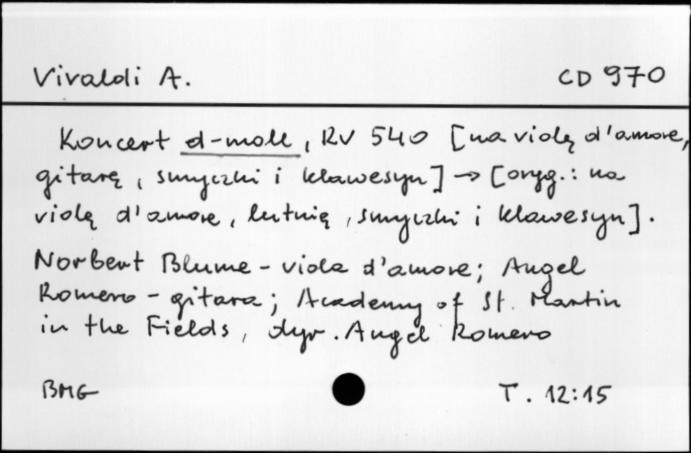 Vivaldi A. CD 970
Koncert d-moll, RV 540 [na violę d'amore,
gitarę, smyczki i klawesyn] → [oryg.: na
violę d'amore, lutnię, smyczki i klawesyn].
Norbert Blume - viola d'amore; Angel
Romero - gitara; Academy of St. Martin
in the Fields, dyr. Angel Romero
BMG T. 12:15